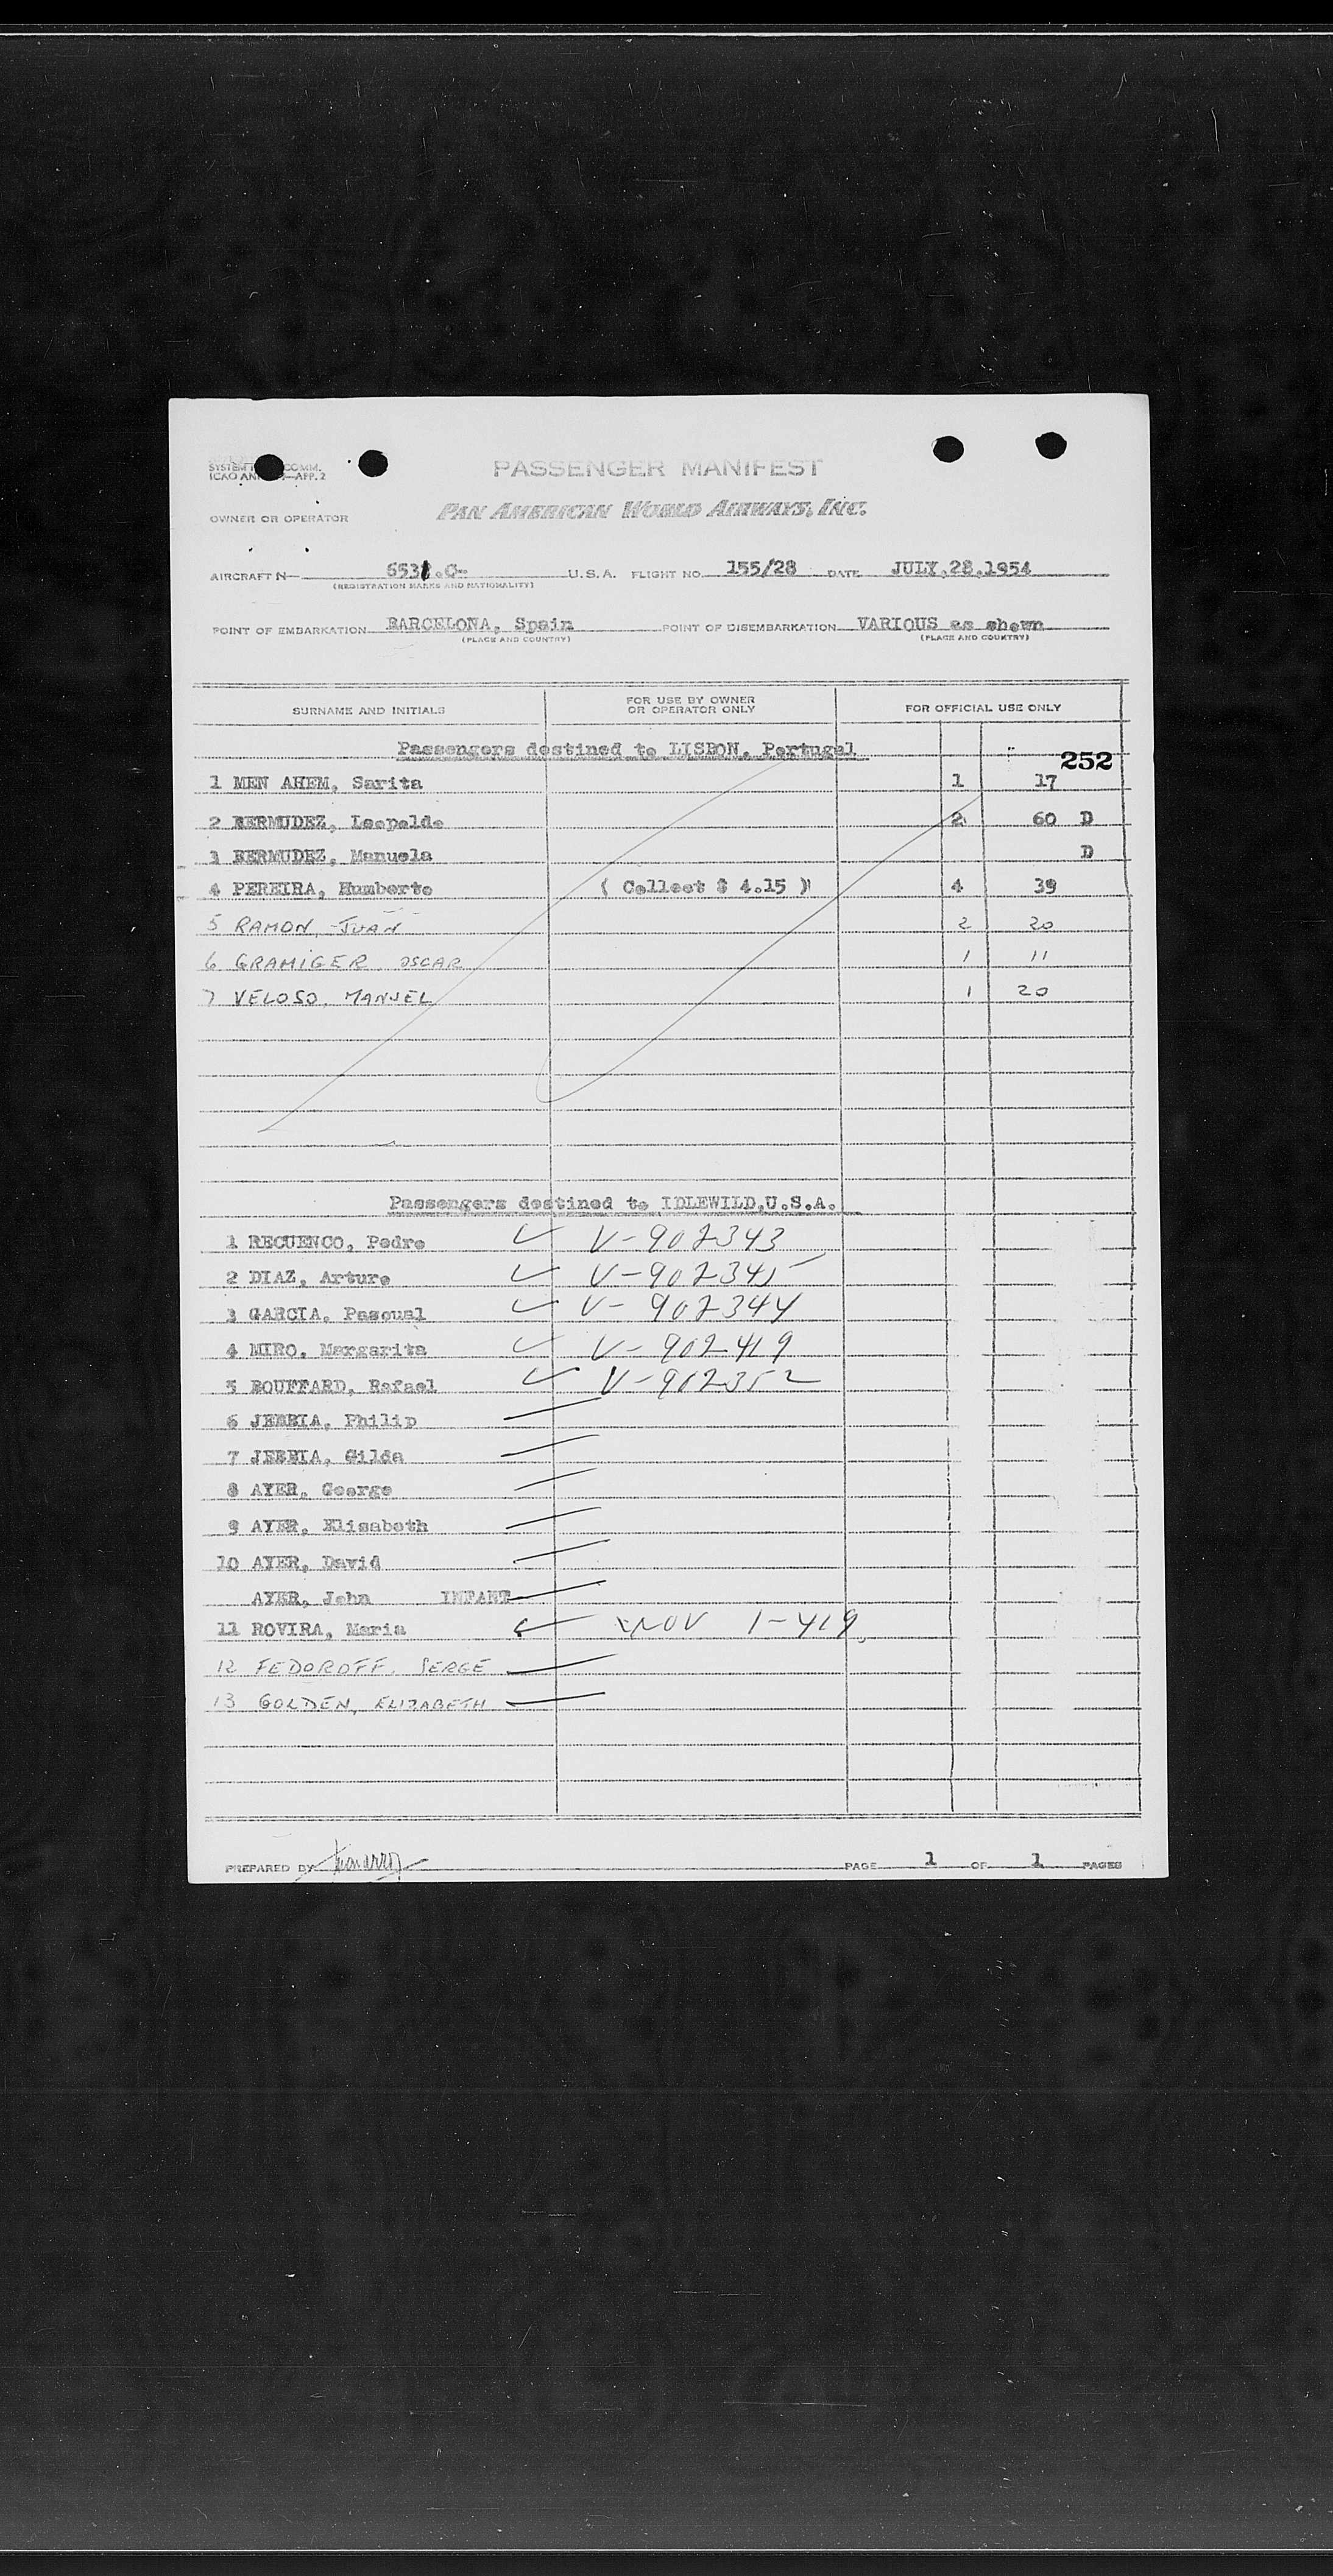 PASSENGER MANIFEST
PAN AMERICAN WORLD AIRWAYS, INC.
OWNER OR OPERATOR
AIRCRAFT N— .C- U.S.A. FLIGHT NO. 155/28 DATE JULY.28.1954
(REGISTRATION MARKS AND NATIONALITY)
POINT OF EMBARKATION BARCELONA, Spain POINT OF DISEMBARKATION VARIOUS as shown
(PLACE AND COUNTRY) (PLACE AND COUNTRY)
SURNAME AND INITIALS FOR USE BY OWNER OR OPERATOR ONLY FOR OFFICIAL USE ONLY
Passengers destined to LISBON, Portugal
252
1 MEN AHEM, Sarita 1 17
2 BERMUDEZ, Leopoldo 2 60 D
3 BERMUDEZ, Manuela D
4 PEREIRA, Humberto ( Collect $ 4.15 ) 4 39
5 RAMON, JUAN 2 20
6 GRAMIGER OSCAR 1 11
7 VELOSO, MANUEL 1 20
Passengers destined to IDLEWILD,U.S.A.
1 RECUENCO, Pedro ✓ V-902343
2 DIAZ, Arturo ✓ V-902345
3 GARCIA, Pascual ✓ V-902344
4 MIRO, Margarita ✓ V-902419
5 BOUFFARD, Rafael ✓ V-902352
6 JEBBIA, Philip
7 JEBBIA, Gilda
8 AYER, George
9 AYER, Elisabeth
10 AYER, David
AYER, John INFANT
11 ROVIRA, Maria ✓ 1-419
12 FEDOROFF, SERGE
13 GOLDEN, ELIZABETH
PREPARED BY PAGE 1 OF 1 PAGES